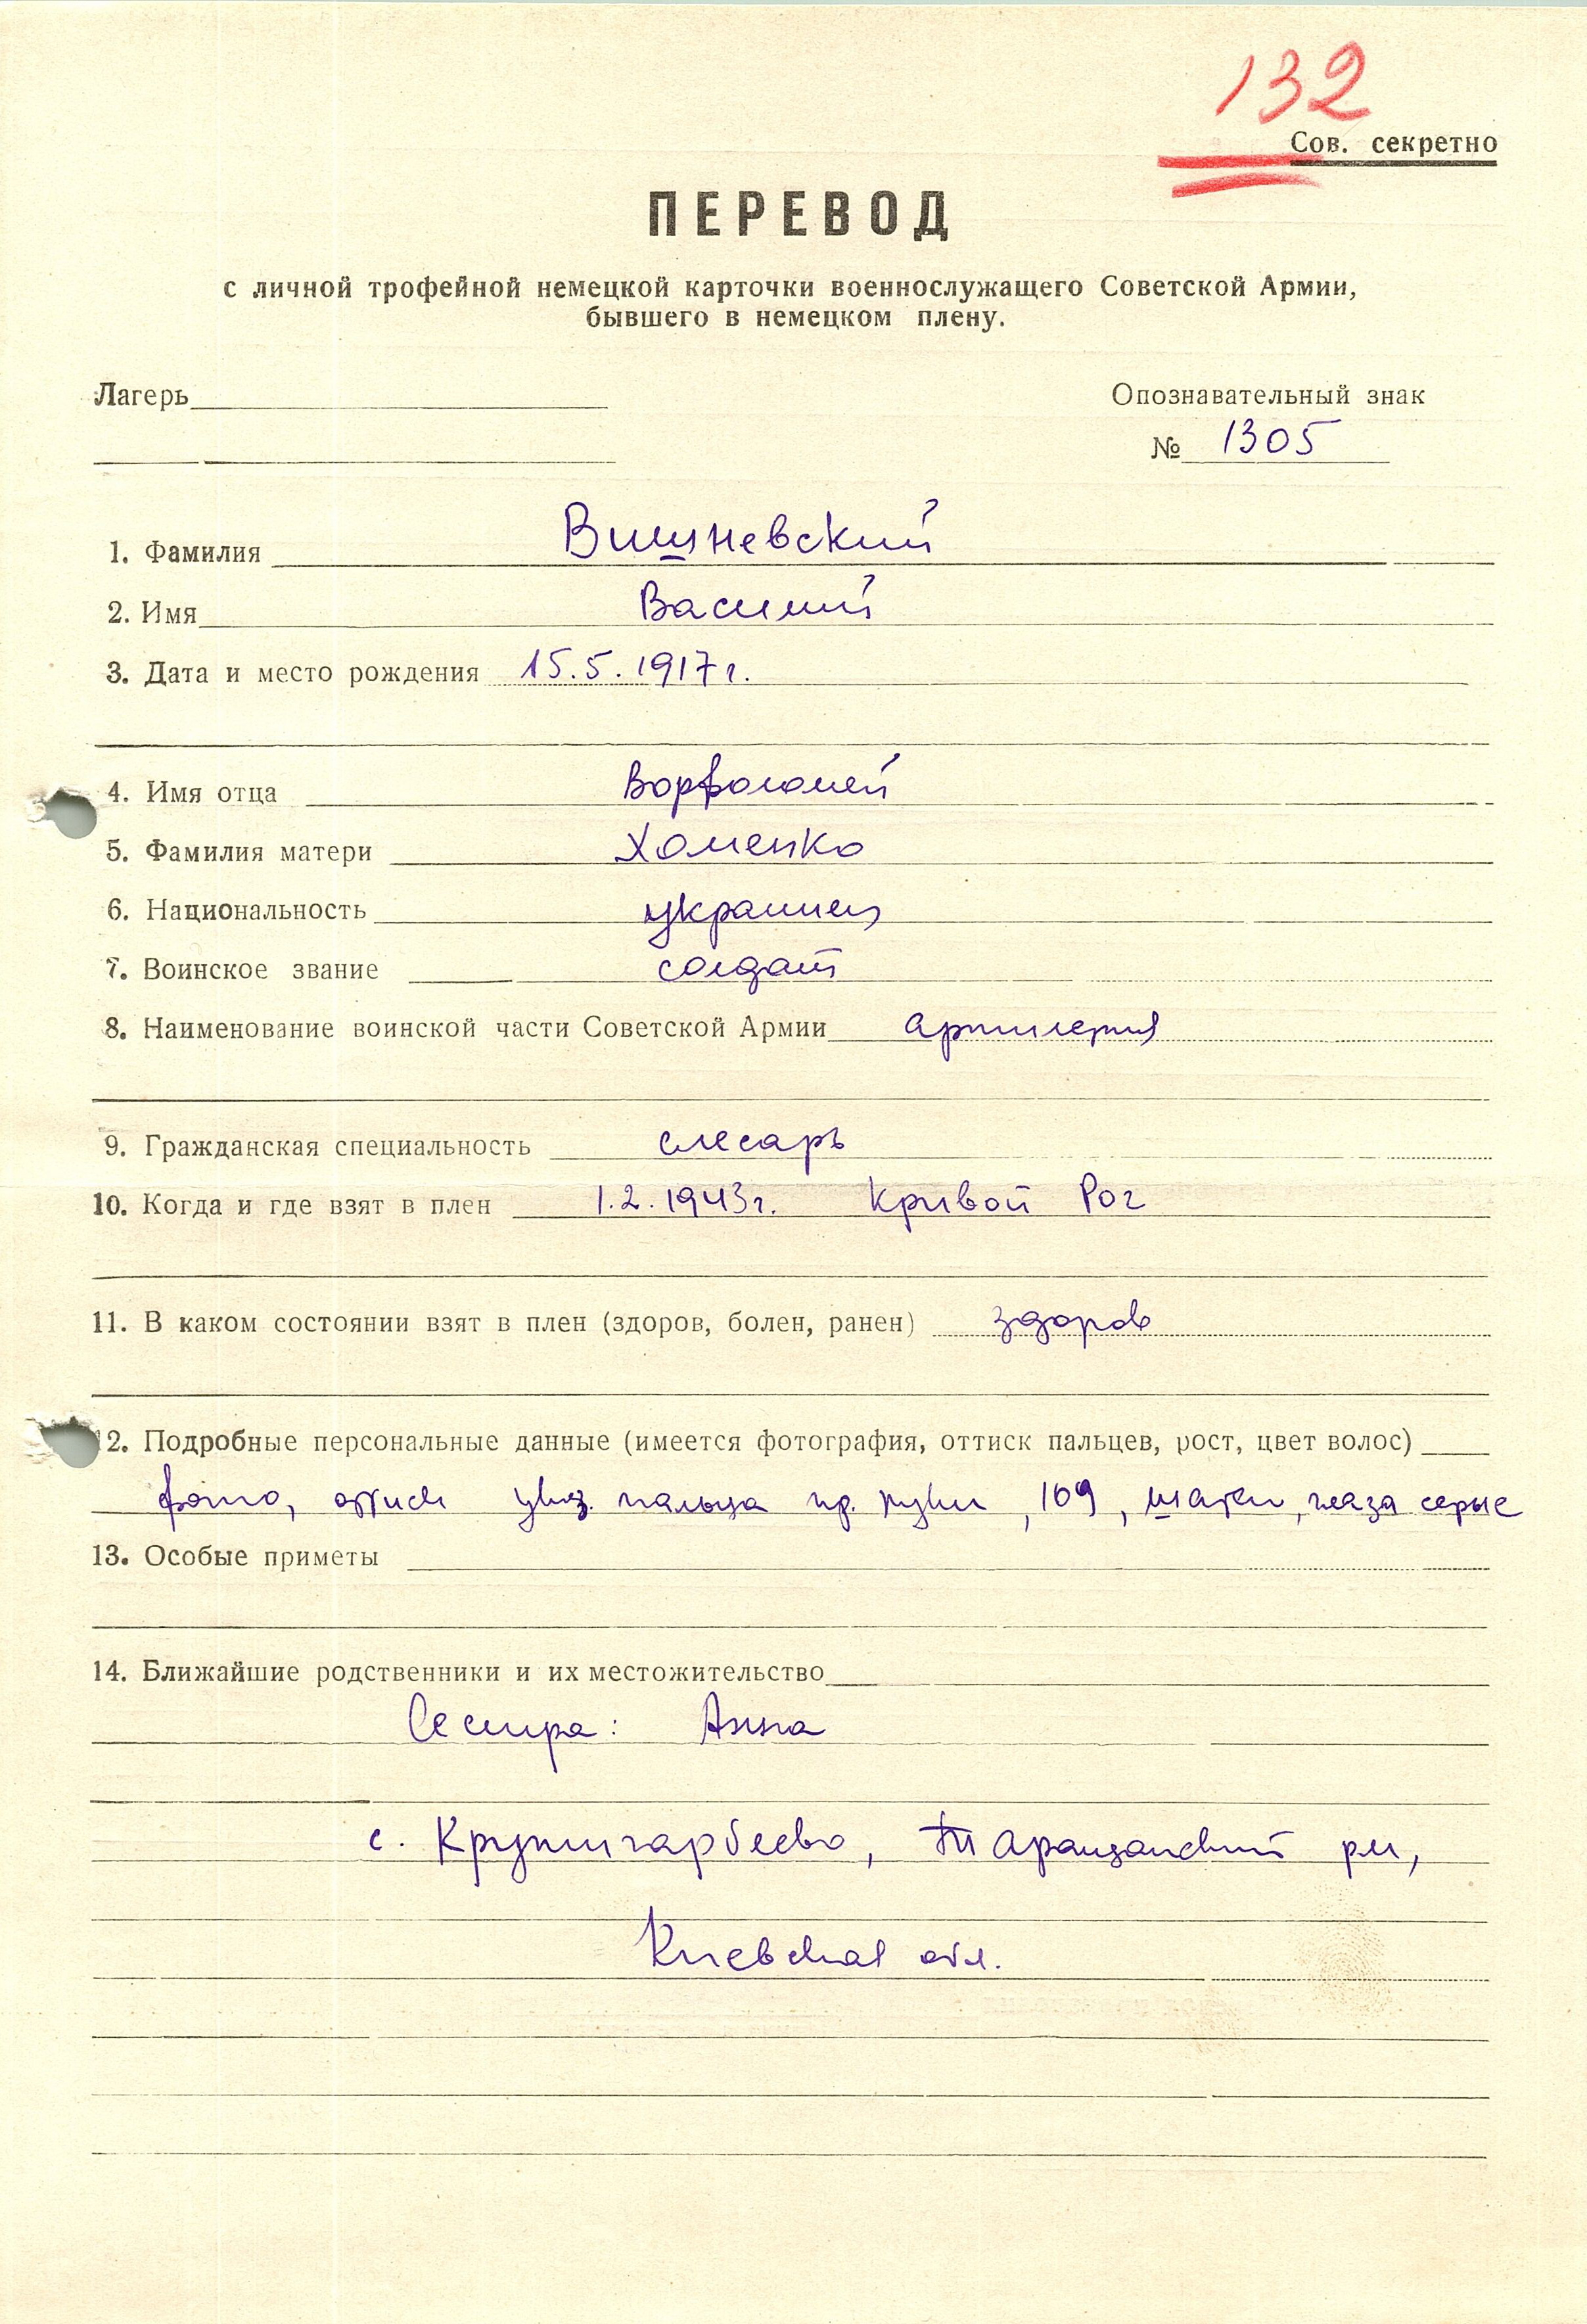 132
Сов. секретно
ПЕРЕВОД
с личной трофейной немецкой карточки военнослужащего Советской Армии,
бывшего в немецком плену.
Лагерь
Опознавательный знак
№ 1305
1. Фамилия Вишневский
2. Имя Василий
3. Дата и место рождения 15.5.1917 г.
4. Имя отца Ворфоломей
5. Фамилия матери Хоменко
6. Национальность украинец
7. Воинское звание солдат
8. Наименование воинской части Советской Армии артилерия
9. Гражданская специальность слесарь
10. Когда и где взят в плен 1.2.1943 г. Кривой Рог
11. В каком состоянии взят в плен (здоров, болен, ранен) здоров
12. Подробные персональные данные (имеется фотография, оттиск пальцев, рост, цвет волос)
фото, оттиск указ. пальца пр. руки, 169, шатен, глаза серые
13. Особые приметы
14. Ближайшие родственники и их местожительство
Сестра: Анна
с. Таращанский рн,
Киевская обл.